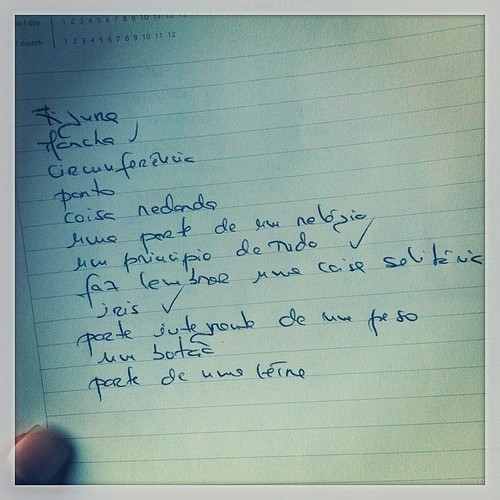 day 1 2 3 4 5 6 7 8 9 10 11
month 1 2 3 4 5 6 7 8 9 10 11 12
mancha
circunferência
ponto
coisa redonda
uma parte de um relógio
um princípio de tudo ✓
faz lembrar uma coisa solitária
iris ✓
parte integrante de um peso
um botão
parte de uma